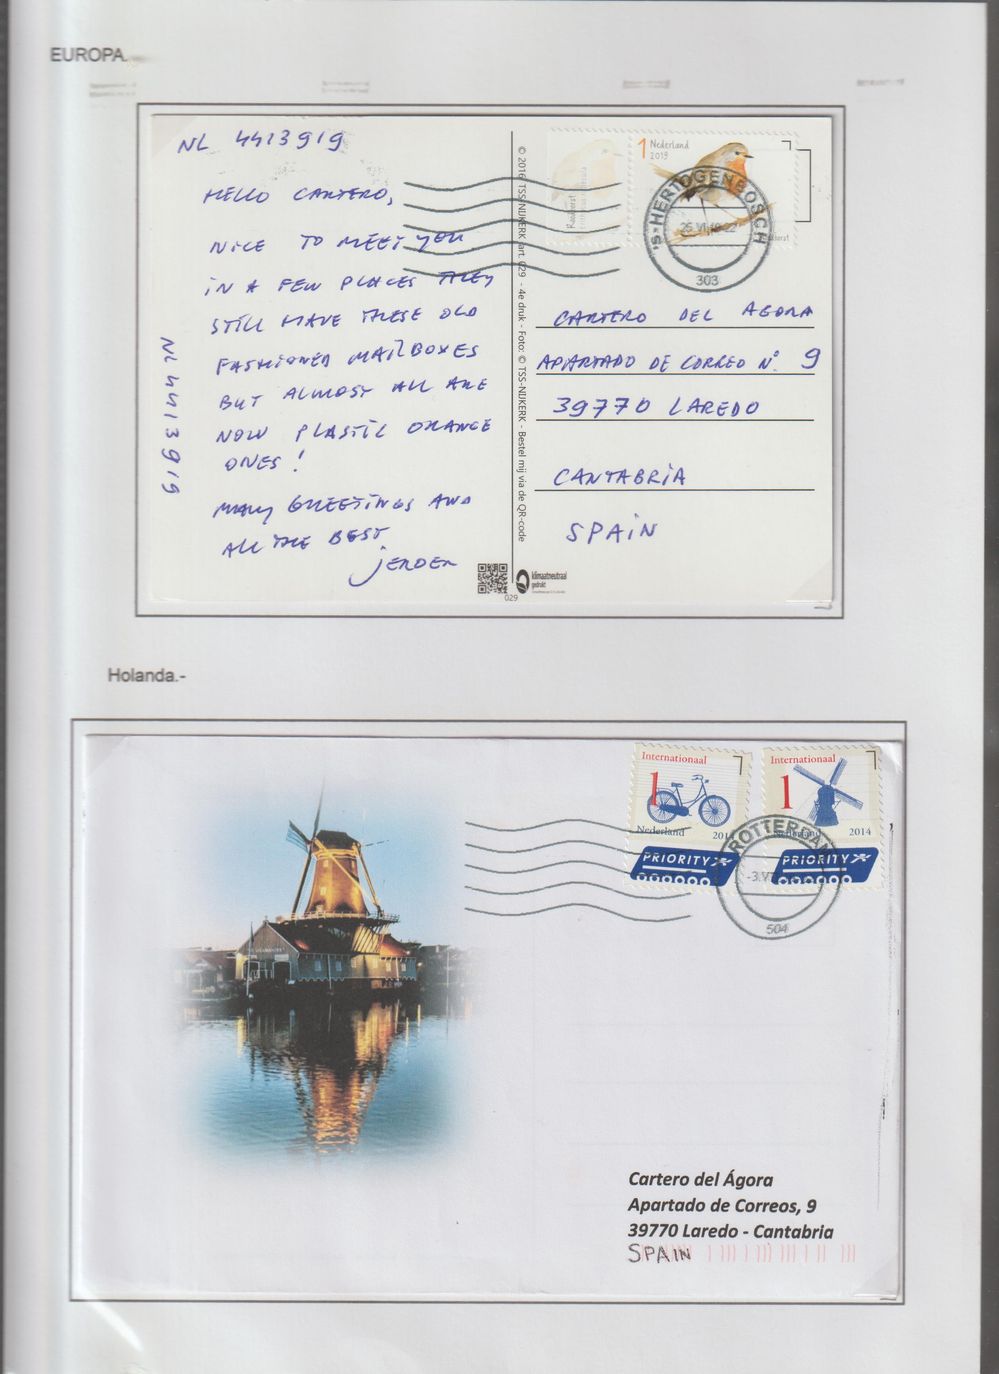 EUROPA.
NL 4413919
HELLO CARTERO,
NICE TO MEET YOU
IN A FEW PLACES THEY
STILL HAVE THESE OLD
FASHIONED MAILBOXES
BUT ALMOST ALL ARE
NOW PLASTIC ORANGE
ONES!
MANY GREETINGS AND
ALL THE BEST
JEROEN
NL 4413919
© 2016 TSS-NIJKERK (art. 029 - 4e druk - Foto: © TSS-NIJKERK - Bestel mij via de QR-code
1 Nederland
2019
Roodborst
'S-HERTOGENBOSCH
303
CARTERO DEL AGORA
APARTADO DE CORREO Nº. 9
39770 LAREDO
CANTABRIA
SPAIN
klimaatneutraal
gedrukt
029
Holanda.-
Internationaal
1
Nederland 2014
PRIORITY
Internationaal
1
Nederland 2014
PRIORITY
ROTTERDAM
504
Cartero del Ágora
Apartado de Correos, 9
39770 Laredo - Cantabria
SPAIN